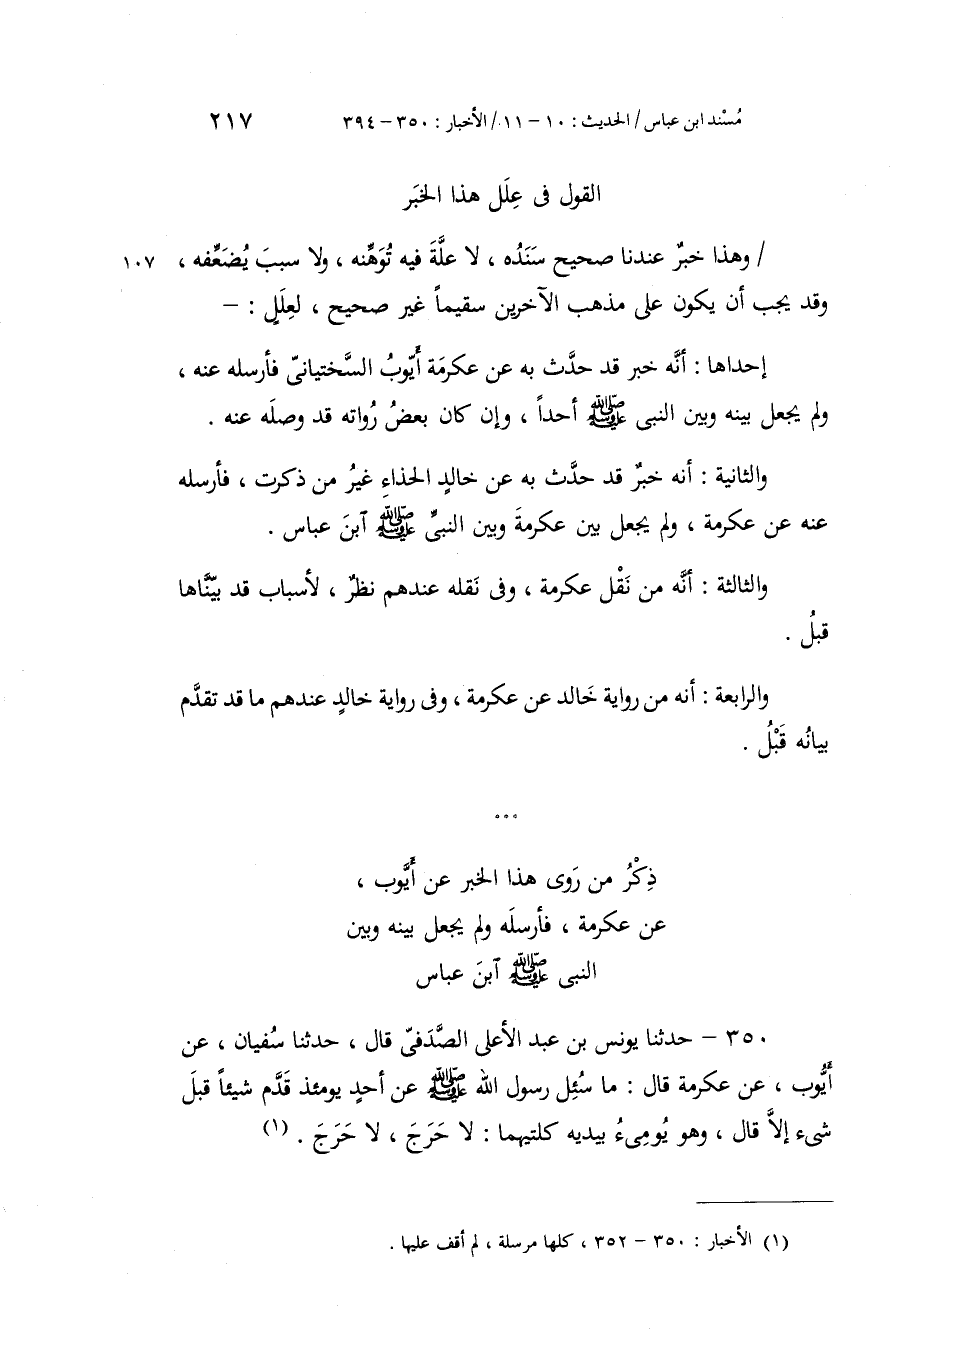 مُسْند ابن عباس / الحديث : ١٠ – ١١ / الأخبار : ٣٥٠ – ٣٩٤ ٢١٧
القول فى عِلَل هذا الخبَر
/ وهذا خبرٌ عندنا صحيح سَنَدُه ، لا علَّةَ فيه تُوَهِّنه ، ولا سببَ يُضَعِّفه ، ١٠٧
وقد يجب أن يكون على مذهب الآخرين سقيماً غير صحيح ، لعِلَلٍ : –
إحداها : أنَّه خبر قد حدَّث به عن عكرمَة أَيّوبُ السَّختيانىّ فأرسله عنه ،
ولم يجعل بينه وبين النبى ﷺ أحداً ، وإن كان بعضُ رُواته قد وصلَه عنه .
والثانية : أنه خبرٌ قد حدَّث به عن خالدٍ الحذاءِ غيرُ من ذكرت ، فأرسله
عنه عن عكرمة ، ولم يجعل بين عكرمةَ وبين النبىِّ ﷺ آبنَ عباس .
والثالثة : أنَّه من نَقْل عكرمة ، وفى نَقله عندهم نظرٌ ، لأسباب قد بيّنَّاها
قبلُ .
والرابعة : أنه من رواية خَالد عن عكرمة ، وفى رواية خالدٍ عندهم ما قد تقدَّم
بيانُه قَبْلُ .
° ° °
ذِكْرُ من رَوى هذا الخبر عن أَيُّوب ،
عن عكرمة ، فأرسلَه ولم يجعل بينه وبين
النبى ﷺ آبنَ عباس
٣٥٠ – حدثنا يونس بن عبد الأعلى الصَّدَفىّ قال ، حدثنا سُفيان ، عن
أيُّوب ، عن عكرمة قال : ما سُئِل رسول الله ﷺ عن أحدٍ يومئذ قَدَّم شيئاً قبلَ
شىء إلاَّ قال ، وهو يُومِىءُ بيديه كلتيهما : لا حَرَجَ ، لا حَرَجَ . (١)
(١) الأخبار : ٣٥٠ – ٣٥٢ ، كلها مرسلة ، لم أقف عليها .